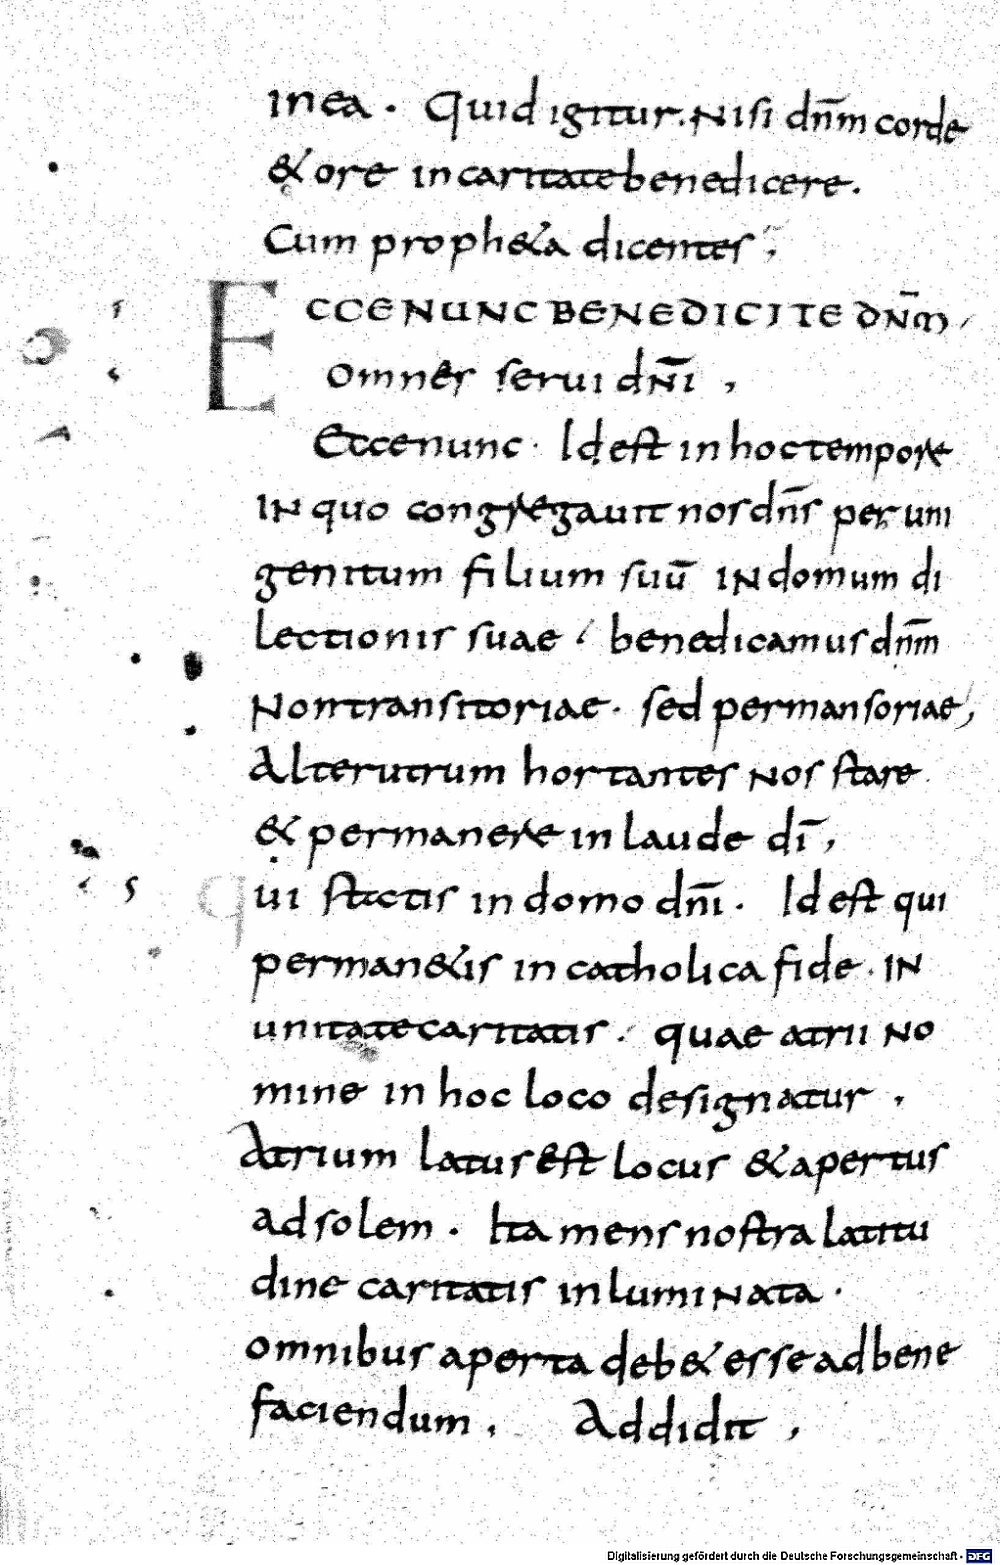 in ea . Quid igitur. Nisi dnm̄ corde
& ore in caritate benedicere.
Cum proph&a dicentes ;
ECCE NUNC BENEDICITE DNM̄
omnes serui dnī ,
Ecce nunc · Id est in hoc tempore
IN quo congregauit nos dns̄ per uni
genitum filium suū IN domum di
lectionis suae benedicamus dnm̄
Non transitoriae · sed permansoriae,
Alterutrum hortantes Nos stare
& permanere in laude dī ,
qui statis in domo dnī . Id est qui
perman&is in catholica fide . IN
unitate caritatis . quae atrii No
mine in hoc loco designatur ,
Atrium latus est locus & apertus
ad solem . Ita mens nostra latitu
dine caritatis inlumiNata .
omnibus aperta deb& esse ad bene
faciendum . Addidit ,
Digitalisierung gefördert durch die Deutsche Forschungsgemeinschaft - DFG